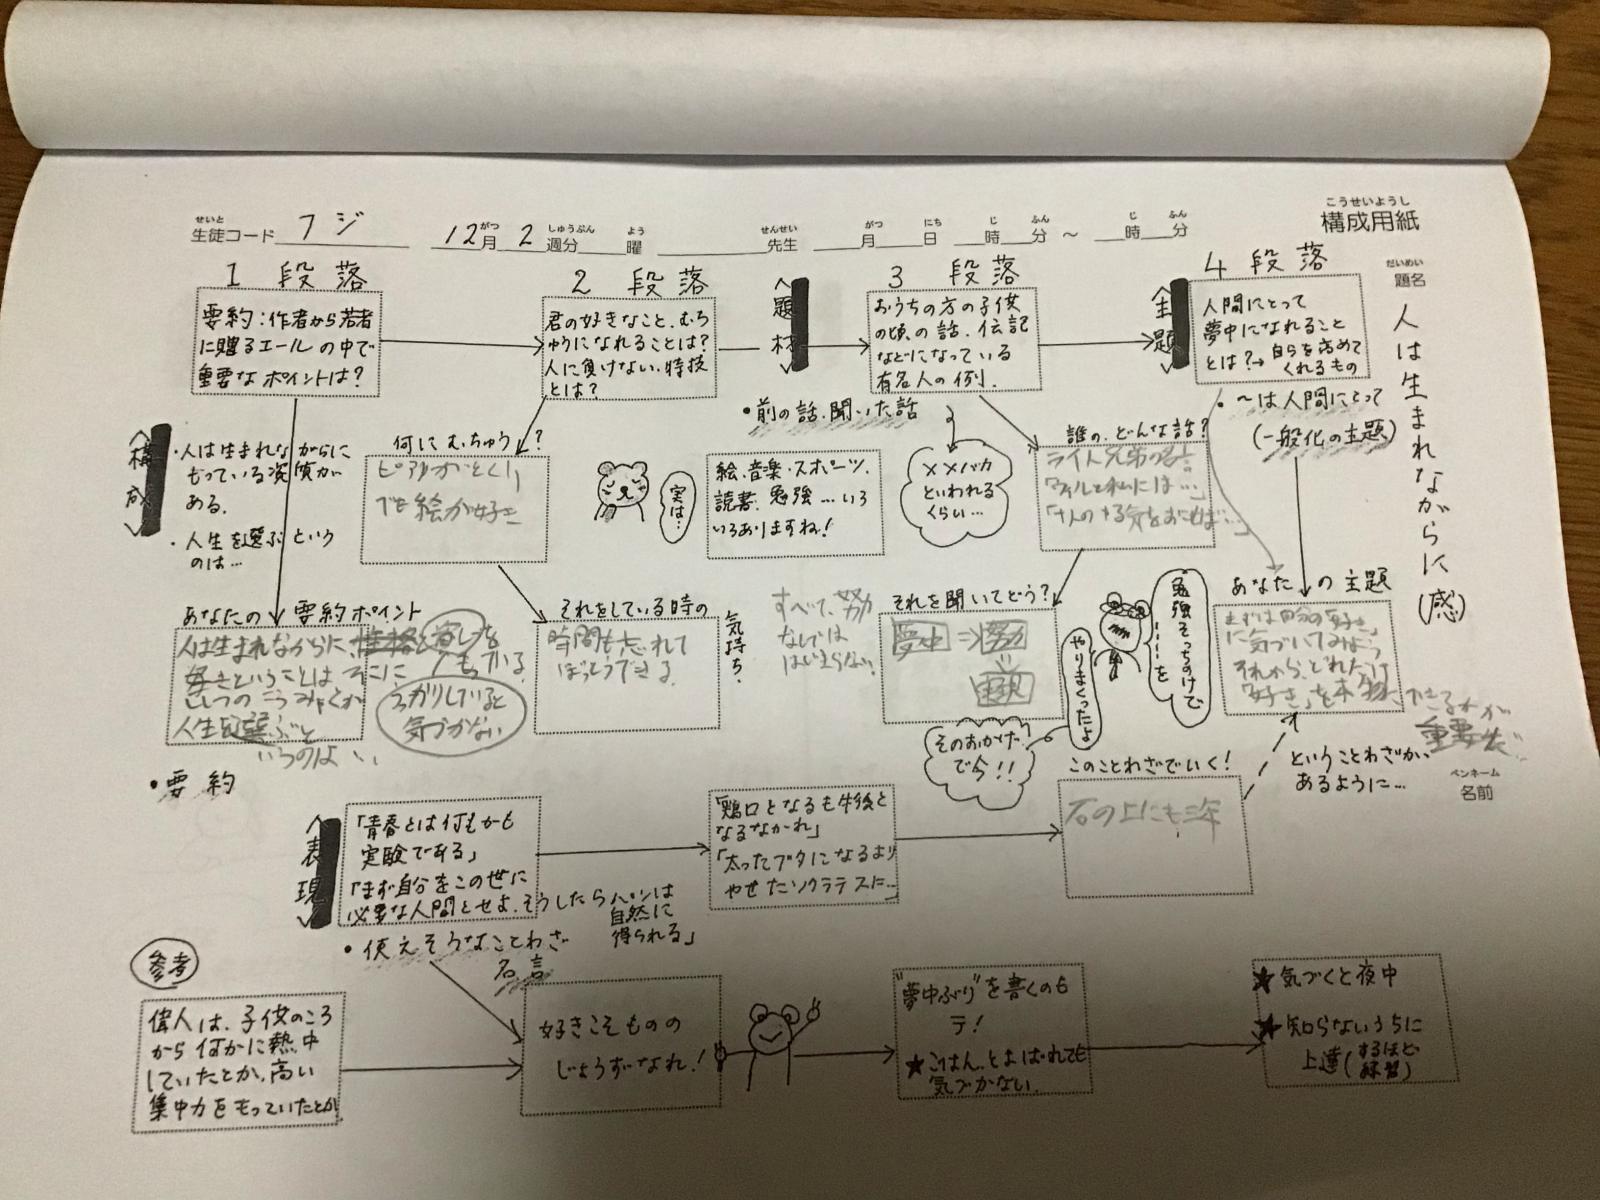 せいと
生徒コード フジ
がつ しゅうぶん よう
12月 2 週分 曜
せんせい
先生
がつ にち じ ふん じ ふん
月 日 時 分 ～ 時 分
こうせいようし
構成用紙
だいめい
題名
人は生まれながらに(感)
ペンネーム
名前
1 段落
要約:作者から若者
に贈るエールの中で
重要なポイントは?
2 段落
君の好きなこと、むち
ゅうになれることは?
人に負けない、特技
とは?
〈題材〉
3 段落
おうちの方の子供
の頃の話、伝記
などになっている
有名人の例.
〈主題〉
4 段落
人間にとって
夢中になれること
とは?→自らを高めて
くれるもの
〈構成〉
・人は生まれながらに
もっている資質が
ある.
・人生を選ぶという
のは…
何にむちゅう?
でも絵が好き
実は…
・前の話、聞いた話
絵・音楽・スポーツ、
読書、勉強…いろ
いろありますね!
××バカ
といわれる
くらい…
誰の、どんな話?
ライト兄弟の
・～は人間にとって
(一般化の主題)
あなたの要約ポイント
人は生まれながらに
もっている
好きということは そこに
人生を選ぶと
いうのは、、
うっかりしていると
気づかない
・要約
それをしている時の
気持ち.
時間も忘れて
ぼっとうできる.
すべて、努力
なしでは
はじまらない
それを聞いてどう?
夢中⇒努力
⇓
実現
そのおかげ
で今!!
やりまくったよ
勉強そっちのけで
……を
あなたの主題
まずは自分の「好き」
に気づいてみよう
それから、どれだけ
「好き」を本物にできるかが
重要だ
ということわざが、
あるように…
このことわざでいく!
石の上にも三年
〈表現〉
「青春とは何もかも
実験である」
「まず自分をこの世に
必要な人間とせよ.そうしたらパンは
自然に
得られる」
・使えそうなことわざ
名言
「鶏口となるも牛後と
なるなかれ」
「太ったブタになるより
やせたソクラテスに…」
参考
偉人は、子供のころ
から何かに熱中
していたとか、高い
集中力をもっていたとか
好きこそものの
じょうずなれ!
"夢中ぶり"を書くのも
テ!
★ごはん、とよばれても
気づかない.
★気づくと夜中
★知らないうちに
上達(するほど
練習)